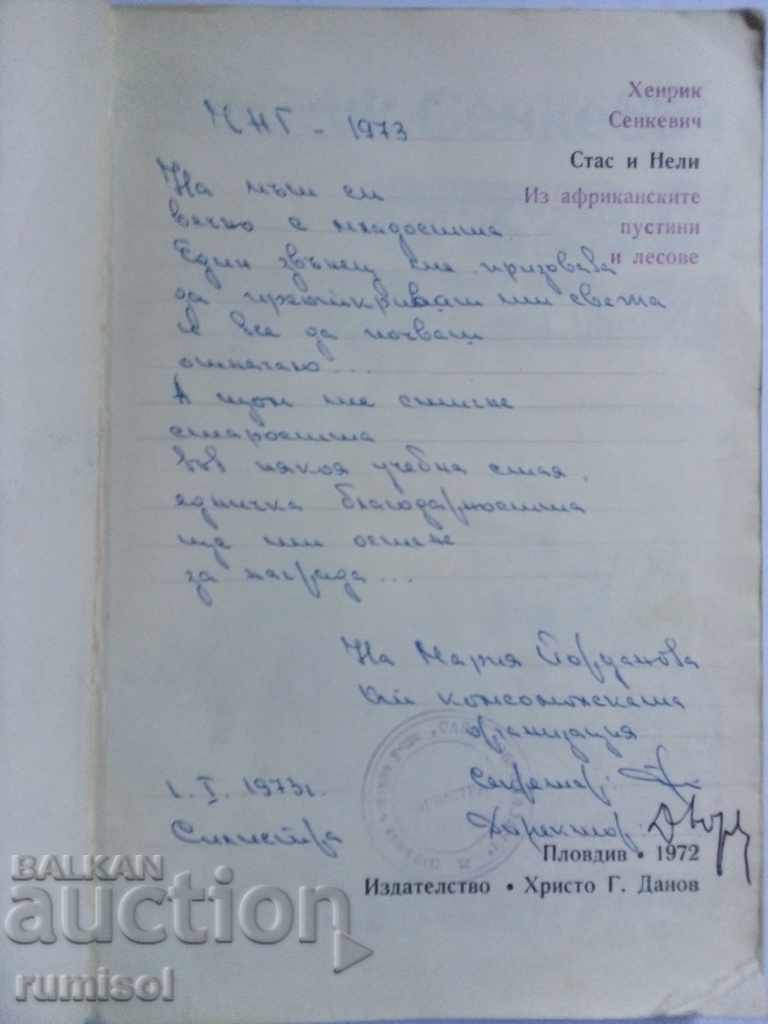 Хенрик
Сенкевич
Стас и Нели
Из африканските
пустини
и лесове
ЧНГ - 1973
На път си
вечно с младостта
Един звънец те призовава
да преоткриваш ти света
и все да почваш
отначало...
А щом те стигне
старостта
във някоя учебна стая,
едничка благодарността
ще ти остане
за награда...
На Мария Йорданова
от комсомолската
организация
1. I. 1973 г.
Секретар:
Силистра
Директор:
Пловдив • 1972
Издателство • Христо Г. Данов
BALKAN
auction
rumisol